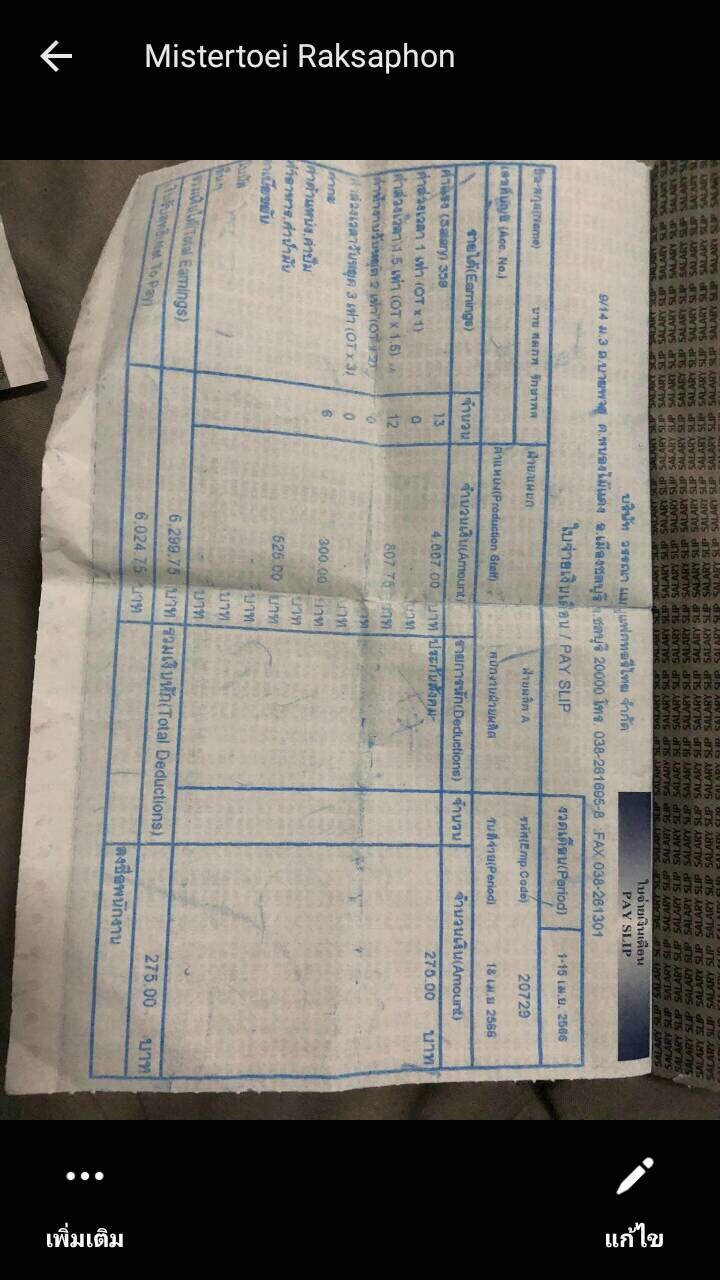 Mistertoei Raksaphon
ใบจ่ายเงินเดือน
PAY SLIP
จำกัด
ม 3 ต.หนองไม้แดง อ.เมืองชลบุรี จ.ชลบุรี 20000 โทร. 038-261695-8 FAX.038-261301
ใบจ่ายเงินเดือน / PAY SLIP
งวดเดือน(Period) 1-15 เม.ย. 2566
ชื่อ-สกุล(Name) นาย
ฝ่าย/แผนก ฝ่ายผลิต A
รหัส(Emp.Code) 20729
เลขที่บัญชี (Acc. No.)
ตำแหน่ง(Production Staff) พนักงานฝ่ายผลิต
วันที่จ่าย(Period) 18 เม.ย 2566
รายได้(Earnings) จำนวน จำนวนเงิน(Amount) รายการหัก(Deductions) จำนวน จำนวนเงิน(Amount)
ค่าแรง (Salary) 359 13 4,667.00 บาท ประกันสังคม 275.00 บาท
ค่าล่วงเวลา 1 เท่า (OT x 1) 0 บาท
ค่าล่วงเวลา1.5 เท่า (OT x 1.5) 12 807.75 บาท
2 เท่า (OT x 2) 0 บาท
ค่าล่วงเวลาวันหยุด 3 เท่า (OT x 3) 0 บาท
ค่ากะ 6 300.00 บาท
ค่าตำแหน่ง,ค่า บาท
ค่าอาหาร,ค่าน้ำมัน 525.00 บาท
เบี้ยขยัน บาท
บาท
อื่นๆ บาท
รวมเงินได้(Total Earnings) 6,299.75 บาท รวมเงินหัก(Total Deductions) 275.00 บาท
เงินรับสุทธิ(Net To Pay) 6,024.75 บาท ลงชื่อพนักงาน
SALARY SLIP
เพิ่มเติม
แก้ไข